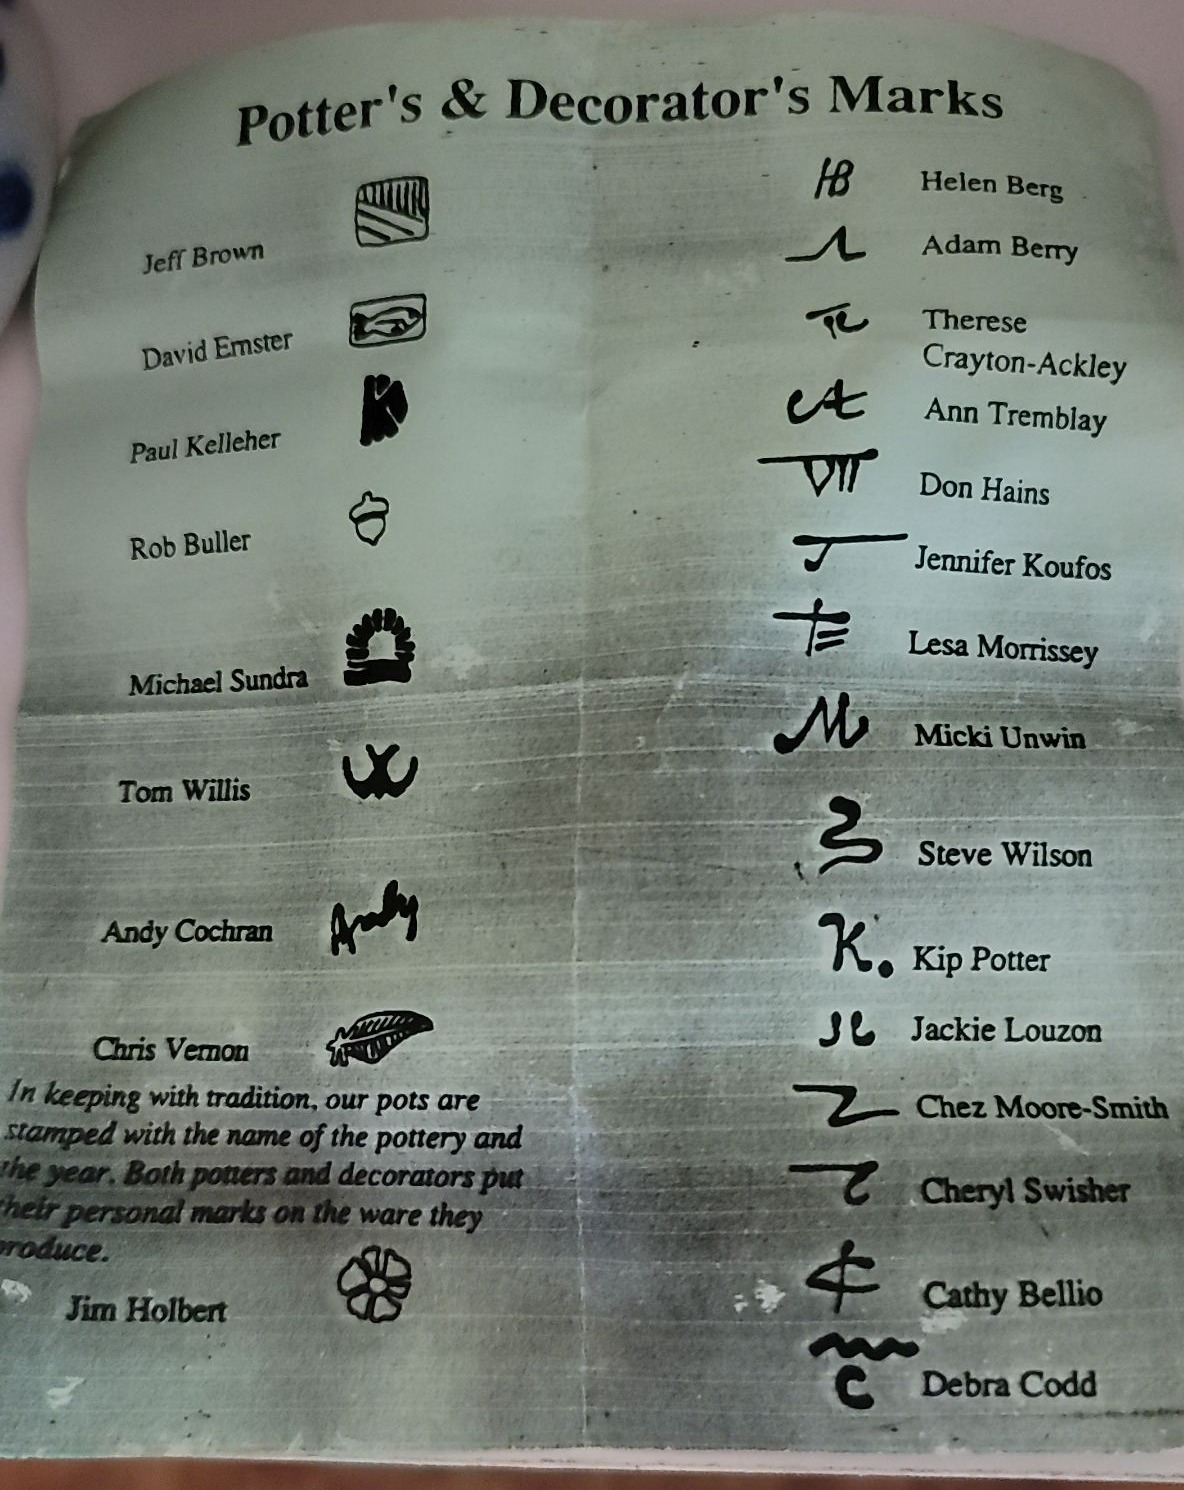 Potter's & Decorator's Marks
Jeff Brown
David Ernster
Paul Kelleher
Rob Buller
Michael Sundra
Tom Willis
Andy Cochran
Andy
Chris Vernon
In keeping with tradition, our pots are
stamped with the name of the pottery and
the year. Both potters and decorators put
their personal marks on the ware they
produce.
Jim Holbert
HB Helen Berg
Adam Berry
Therese
Crayton-Ackley
Ann Tremblay
Don Hains
Jennifer Koufos
Lesa Morrissey
M Micki Unwin
Steve Wilson
K. Kip Potter
Jackie Louzon
Chez Moore-Smith
Cheryl Swisher
Cathy Bellio
C Debra Codd